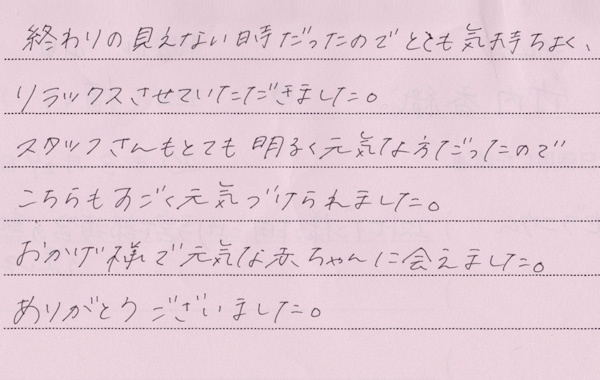 終わりの見えない時だったのでとても気持ちよく、
リラックスさせていただきました。
スタッフさんもとても明るく元気な方だったので
こちらもすごく元気づけられました。
おかげ様で元気な赤ちゃんに会えました。
ありがとうございました。